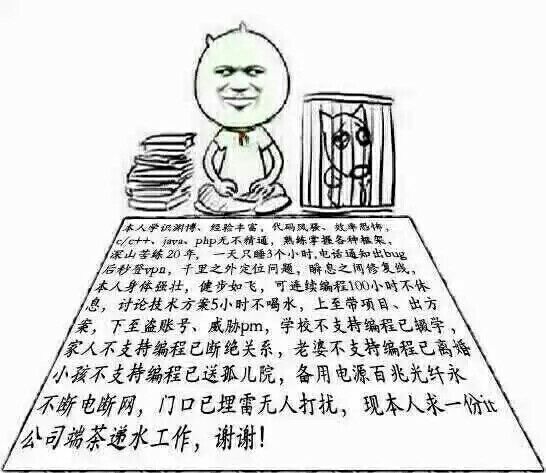 本人学识渊博、经验丰富，代码风骚、效率恐怖，
c/c++、java、php无不精通，熟练掌握各种框架，
深山苦练20年，一天只睡3个小时,电话通知出bug
后秒登vpn，千里之外定位问题，瞬息之间修复上线，
本人身体强壮，健步如飞，可连续编程100小时不休
息，讨论技术方案5小时不喝水，上至带项目、出方
案，下至盗账号、威胁pm，学校不支持编程已辍学，
家人不支持编程已断绝关系，老婆不支持编程已离婚
小孩不支持编程已送孤儿院，备用电源百兆光纤永
不断电断网，门口已埋雷无人打扰，现本人求一份it
公司端茶递水工作，谢谢！